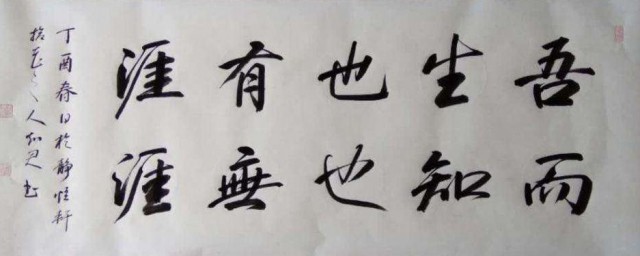 吾生也有涯
而知也無涯
丁酉春日於静轩
之人书